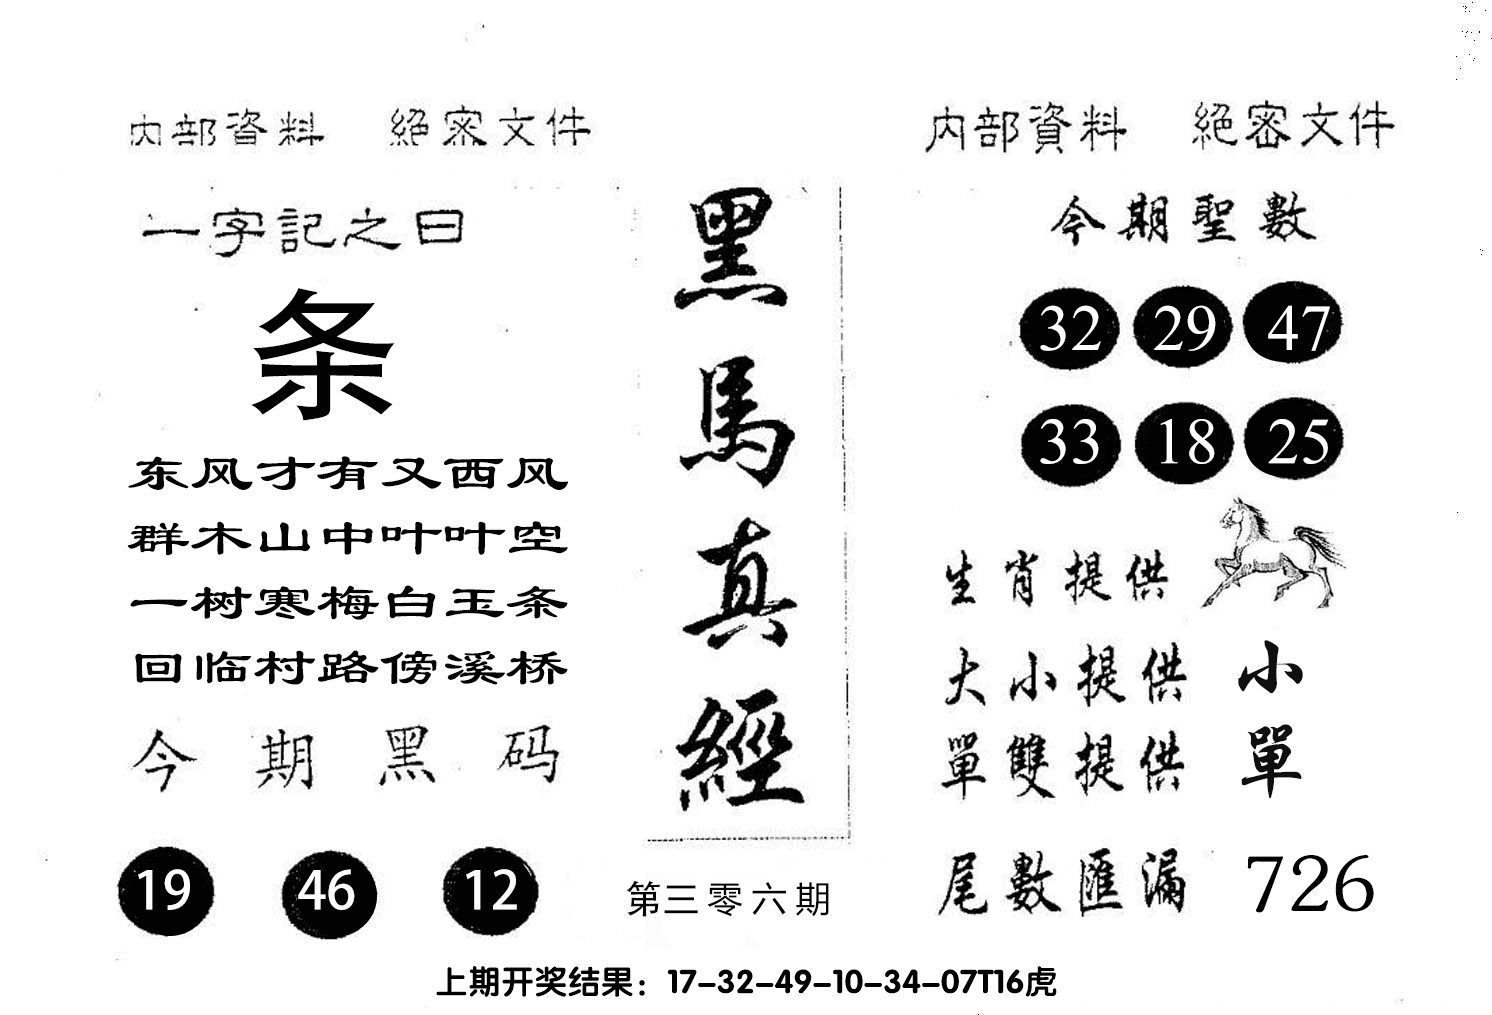 内部資料 絕密文件
一字記之曰
条
东风才有又西风
群木山中叶叶空
一树寒梅白玉条
回临村路傍溪桥
今期黑码
19 46 12
黑馬真經
第三零六期
内部資料 絕密文件
今期聖數
32 29 47
33 18 25
生肖提供
大小提供 小
單雙提供 單
尾數匯漏 726
上期开奖结果：17-32-49-10-34-07T16虎